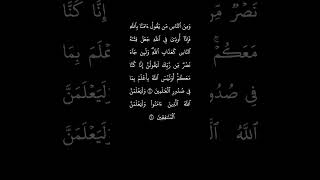 وَمِنَ ٱلنَّاسِ مَن يَقُولُ ءَامَنَّا بِٱللَّهِ
فَإِذَآ أُوذِىَ فِى ٱللَّهِ جَعَلَ فِتْنَةَ
ٱلنَّاسِ كَعَذَابِ ٱللَّهِ وَلَئِن جَآءَ
نَصْرٌ مِّن رَّبِّكَ لَيَقُولُنَّ إِنَّا كُنَّا
مَعَكُمْ أَوَلَيْسَ ٱللَّهُ بِأَعْلَمَ بِمَا
فِى صُدُورِ ٱلْعَـٰلَمِينَ ١٠ وَلَيَعْلَمَنَّ
ٱللَّهُ ٱلَّذِينَ ءَامَنُوا۟ وَلَيَعْلَمَنَّ
ٱلْمُنَـٰفِقِينَ ١١